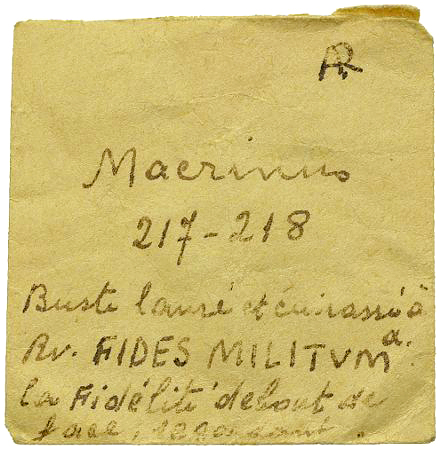 AR
Macrinus
217-218
Buste lauré et cuirassé à
Rv. FIDES MILITVM
a.
la Fidélité debout de
face, regardant